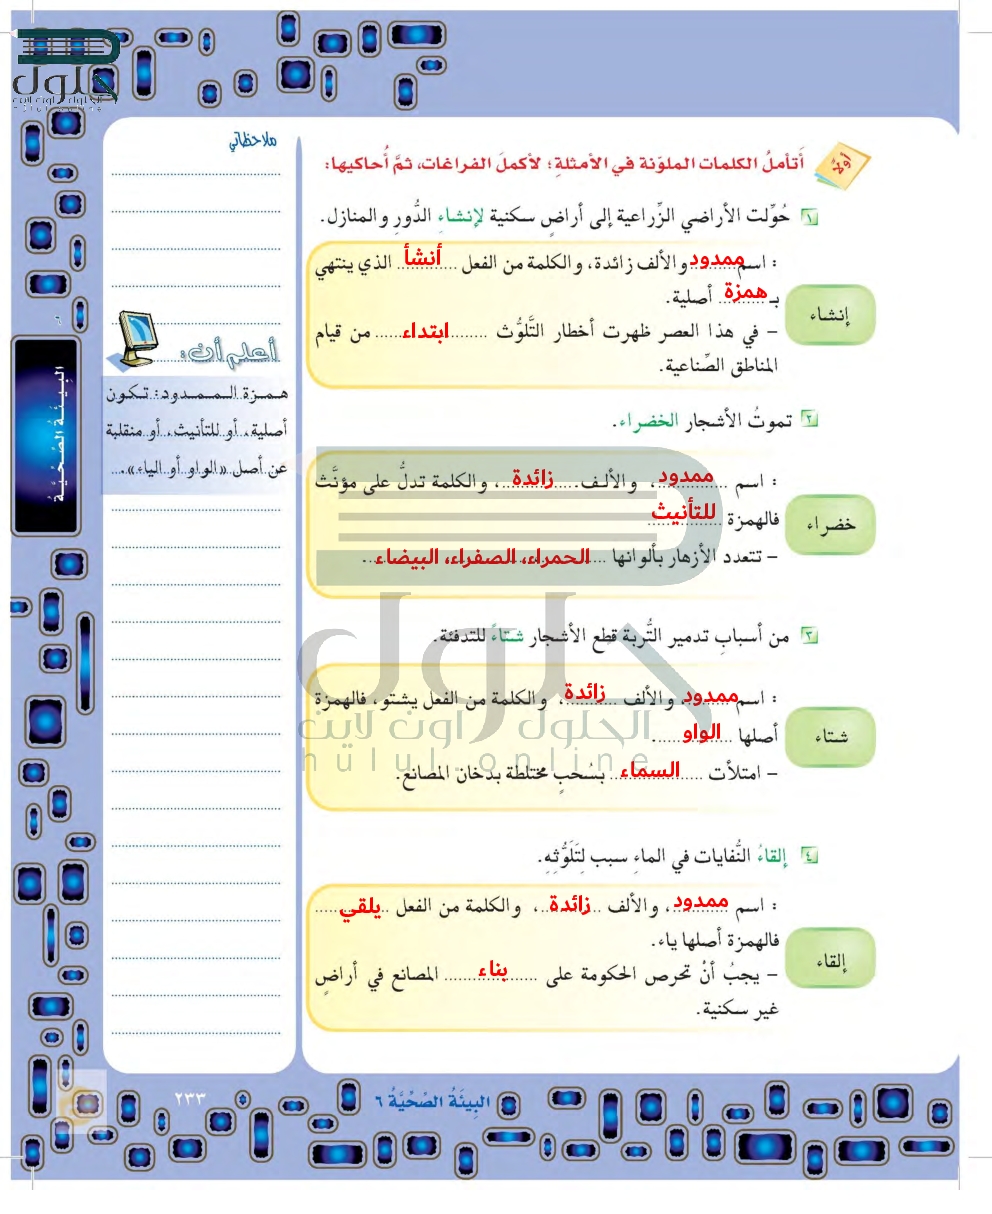 حلول
الحلول اون لاين
hulul.online
ملاحظاتي
أولاً
أتأملُ الكلمات الملوّنة في الأمثلةِ؛ لأكملَ الفراغات، ثمَّ أُحاكيها:
١ حُوِّلت الأراضي الزِّراعية إلى أراضٍ سكنية لإنشاءِ الدُّورِ والمنازل.
إنشاء
: اسم ممدود والألف زائدة، والكلمة من الفعل أنشأ الذي ينتهي
بـ همزة أصلية.
– في هذا العصر ظهرت أخطار التَّلوُّث ........ ابتداء ...... من قيام
المناطق الصِّناعية.
٢ تموتُ الأشجار الخضراء.
خضراء
: اسم ممدود، والألف زائدة، والكلمة تدلُّ على مؤنَّث
فالهمزة للتأنيث
– تتعدد الأزهار بألوانها الحمراء، الصفراء، البيضاء.
٣ من أسبابِ تدمير التُّربة قطع الأشجار شتاءً للتدفئة.
شتاء
: اسم ممدود والألف زائدة، والكلمة من الفعل يشتو، فالهمزة
أصلها الواو.
– امتلأت السماء بسُحبٍ مختلطة بدخان المصانع.
٤ إلقاءُ النُّفايات في الماءِ سبب لِتَلَوُّثِهِ.
إلقاء
: اسم ممدود، والألف زائدة، والكلمة من الفعل يلقي
فالهمزة أصلها ياء.
– يجبُ أنْ تحرص الحكومة على بناء المصانع في أراضٍ
غير سكنية.
أعلم أن:
همزة الممدود: تكون
أصلية، أو للتأنيث، أو منقلبة
عن أصل «الواو أو الياء».
البِيئَةُ الصِّحِّيَّةُ
حلول
الحلول اون لاين
hulul.online
البِيئَةُ الصِّحِّيَّةُ ٦
٢٣٣